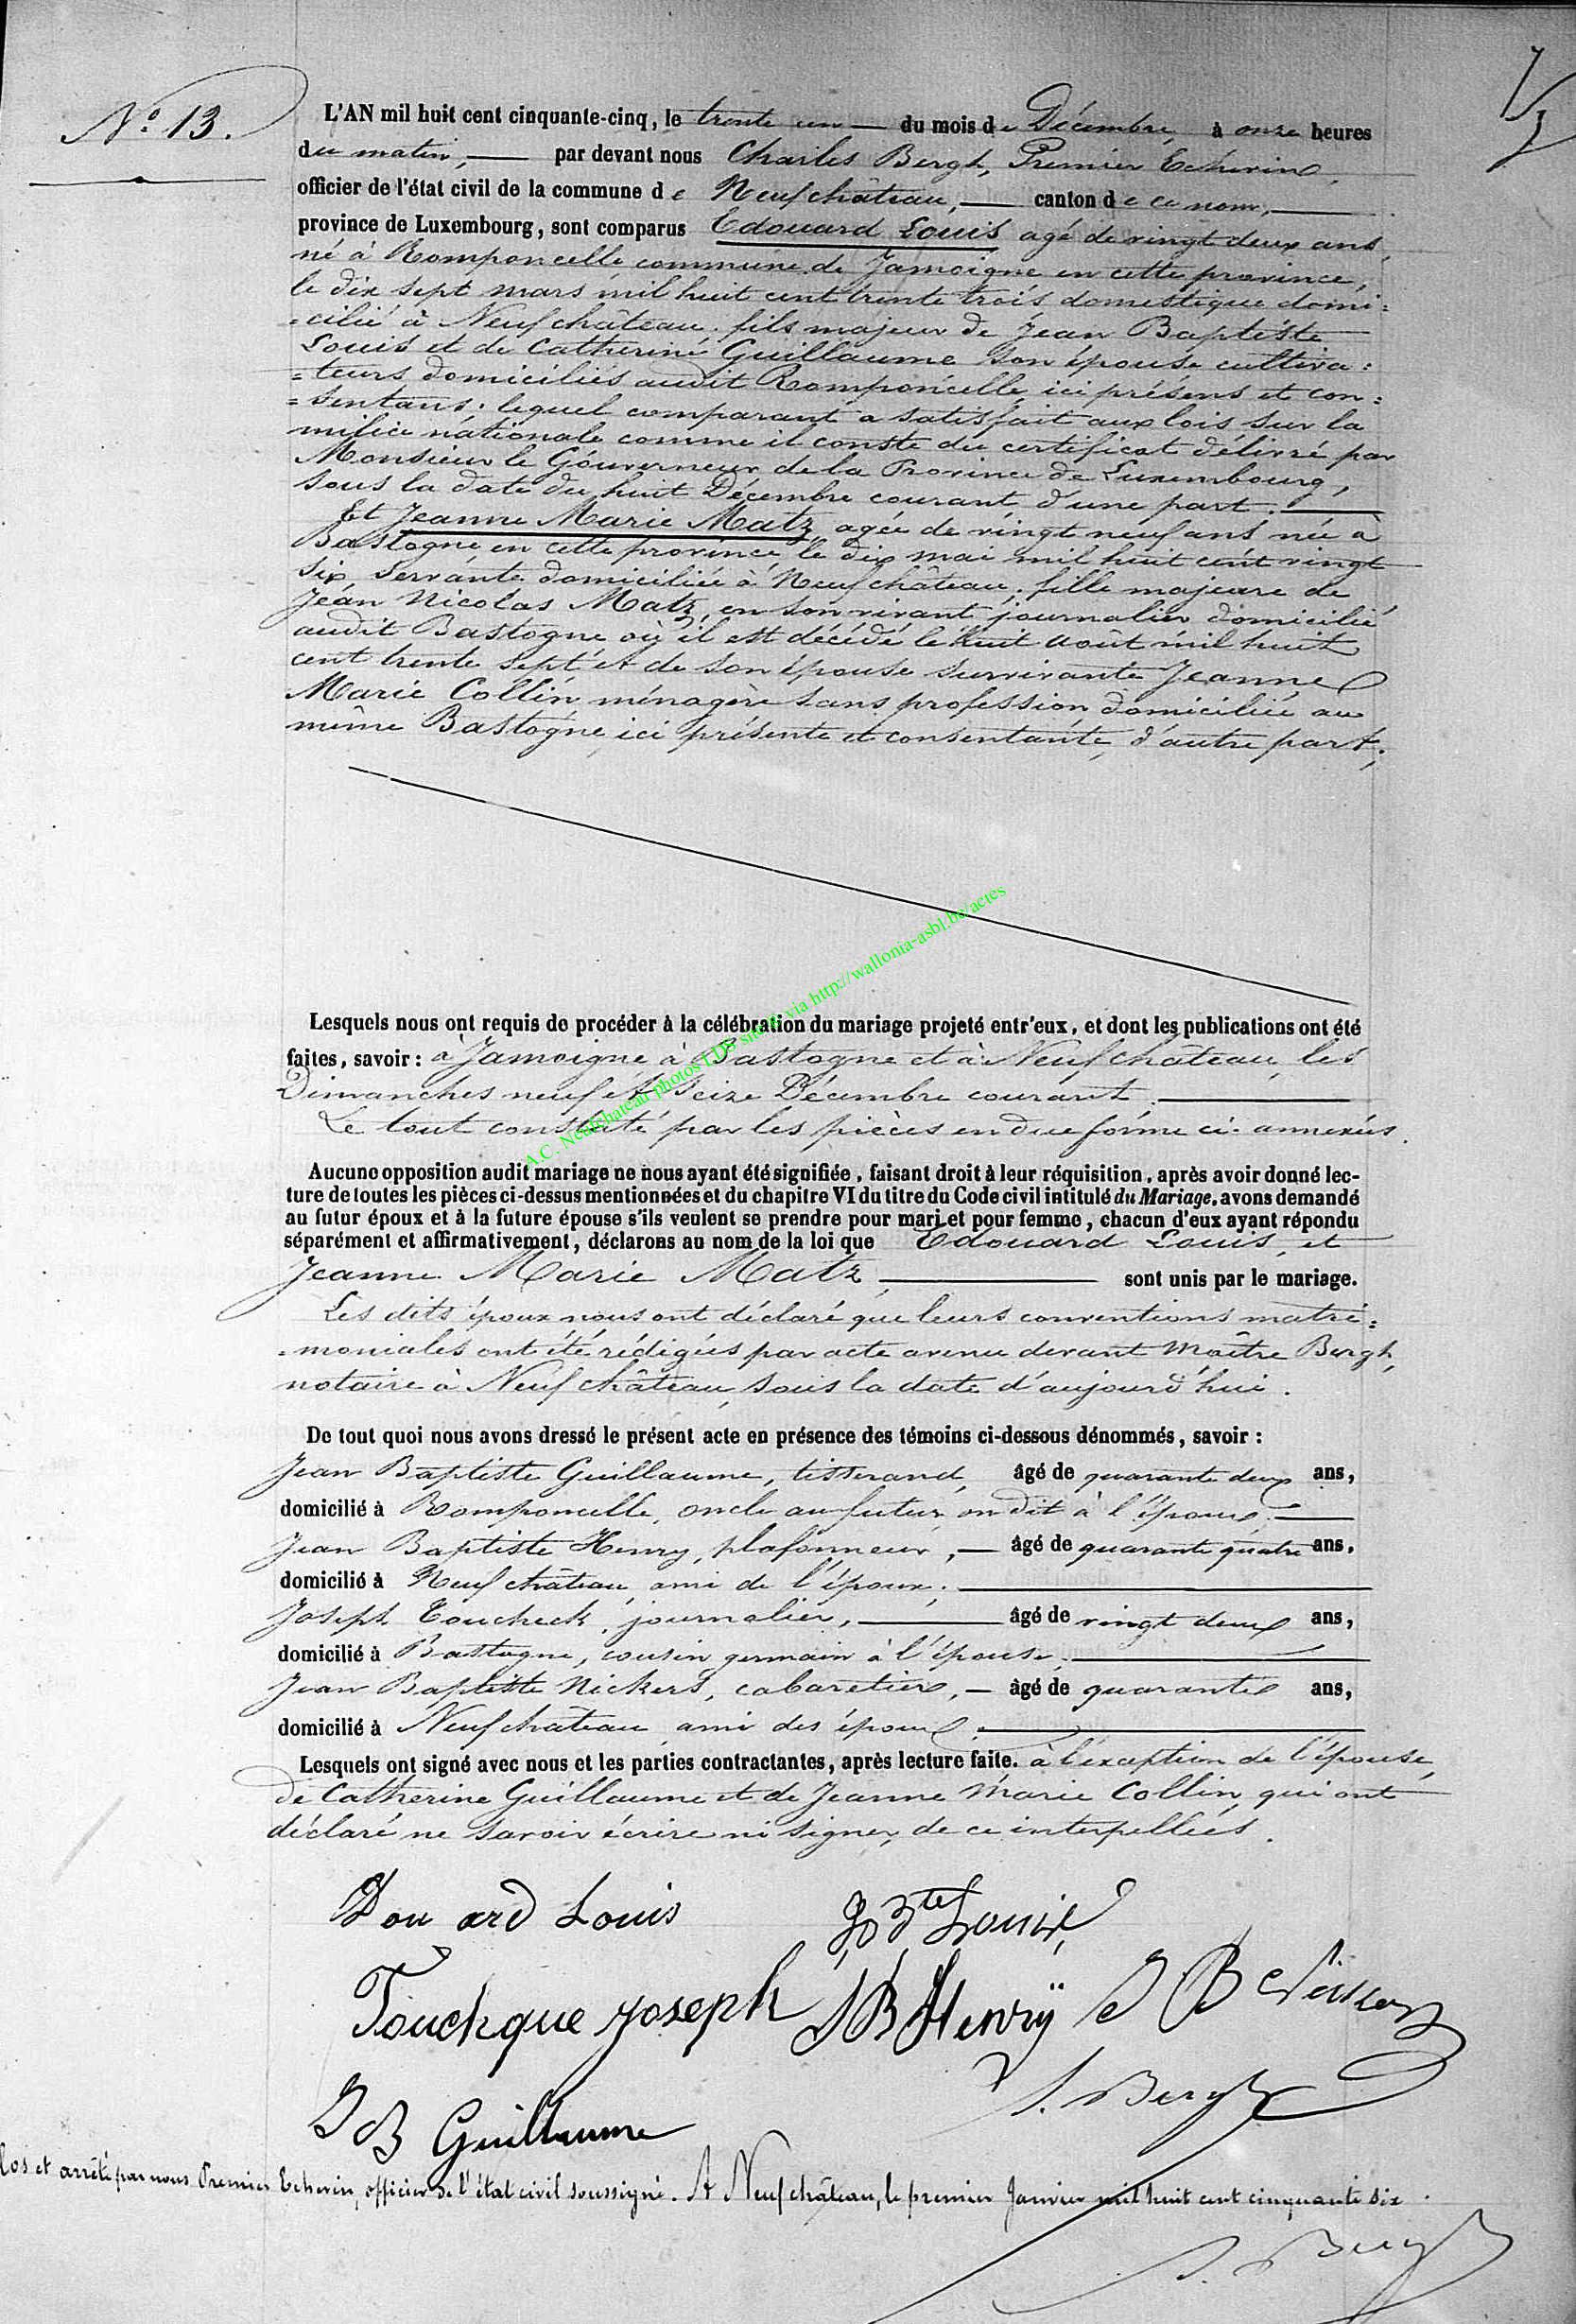 N.° 13.
L'AN mil huit cent cinquante-cinq, le trente un du mois de Décembre, à onze heures
du matin, par devant nous Charles Bergh, Premier Echevin,
officier de l'état civil de la commune de Neufchâteau, canton de ce nom,
province de Luxembourg, sont comparus Edouard Louis agé de vingt deux ans,
né à Romponcelle commune de Jamoigne en cette province,
le dix sept mars mil huit cent trente trois, domestique domi=
=cilié à Neufchâteau, fils majeur de Jean Baptiste
Louis et de Catherine Guillaume son épouse cultiva=
=teurs domiciliés audit Romponcelle, ici présens et con=
=sentans; lequel comparant a satisfait aux lois sur la
milice nationale comme il conste du certificat délivré par
Monsieur le Gouverneur de la Province de Luxembourg,
sous la date du huit Décembre courant, d'une part.
Et Jeanne Marie Matz, agée de vingt neuf ans née à
Bastogne en cette province, le dix mai mil huit cent vingt
six, servante domiciliée à Neufchâteau, fille majeure de
Jean Nicolas Matz, en son vivant journalier domicilié
audit Bastogne où il est décédé le huit août mil huit
cent trente sept et de son épouse survivante Jeanne
Marie Collin ménagère sans profession domiciliée au
même Bastogne, ici présente et consentante, d'autre part;
Lesquels nous ont requis de procéder à la célébration du mariage projeté entr'eux, et dont les publications ont été
faites, savoir: à Jamoigne à Bastogne et à Neufchâteau, les
Dimanches neuf et seize Décembre courant.
Le tout constaté par les pièces en due forme ci-annexés.
Aucune opposition audit mariage ne nous ayant été signifiée, faisant droit à leur réquisition, après avoir donné lec-
ture de toutes les pièces ci-dessus mentionnées et du chapitre VI du titre du Code civil intitulé du Mariage, avons demandé
au futur époux et à la future épouse s'ils veulent se prendre pour mari et pour femme, chacun d'eux ayant répondu
séparément et affirmativement, déclarons au nom de la loi que Edouard Louis, et
Jeanne Marie Matz, sont unis par le mariage.
Les dits époux nous ont déclaré que leurs conventions matri=
=moniales ont été rédigées par acte avenu devant Maître Bergh,
notaire à Neufchâteau, sous la date d'aujourd'hui.
De tout quoi nous avons dressé le présent acte en présence des témoins ci-dessous dénommés, savoir:
Jean Baptiste Guillaume, tisserand, âgé de quarante deux ans,
domicilié à Romponcelle, oncle au futur, on dit à l'époux;
Jean Baptiste Henry, plafonneur, âgé de quarante quatre ans,
domicilié à Neufchâteau, ami de l'époux;
Joseph Toucheck, journalier, âgé de vingt deux ans,
domicilié à Bastogne, cousin germain à l'épouse;
Jean Baptiste Nickers, cabaretier, âgé de quarante ans,
domicilié à Neufchâteau ami des époux.
Lesquels ont signé avec nous et les parties contractantes, après lecture faite. à l'exception de l'épouse,
de Catherine Guillaume et de Jeanne Marie Collin, qui ont
déclaré ne savoir écrire ni signer, de ce interpellées.
Dou ard Louis
J Bte Louis
Touchque Joseph
J B Henrÿ
J B
Bergh
J B Guillaume
los et arrêté par nous Premier Echevin, officier de l'état civil soussigné. A Neufchâteau, le premier Janvier mil huit cent cinquante six.
Bergh
A.C. Neufchateau photos LDS via http://wallonia-asbl.be/actes